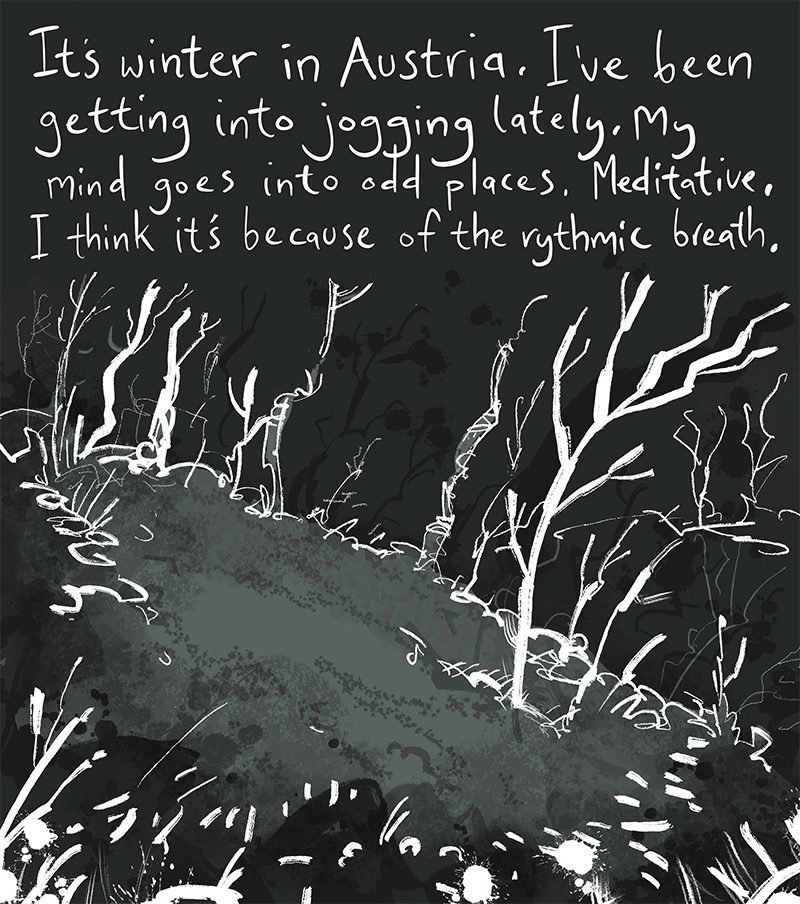 It's winter in Austria. I've been
getting into jogging lately. My
mind goes into odd places. Meditative.
I think it's because of the rythmic breath.